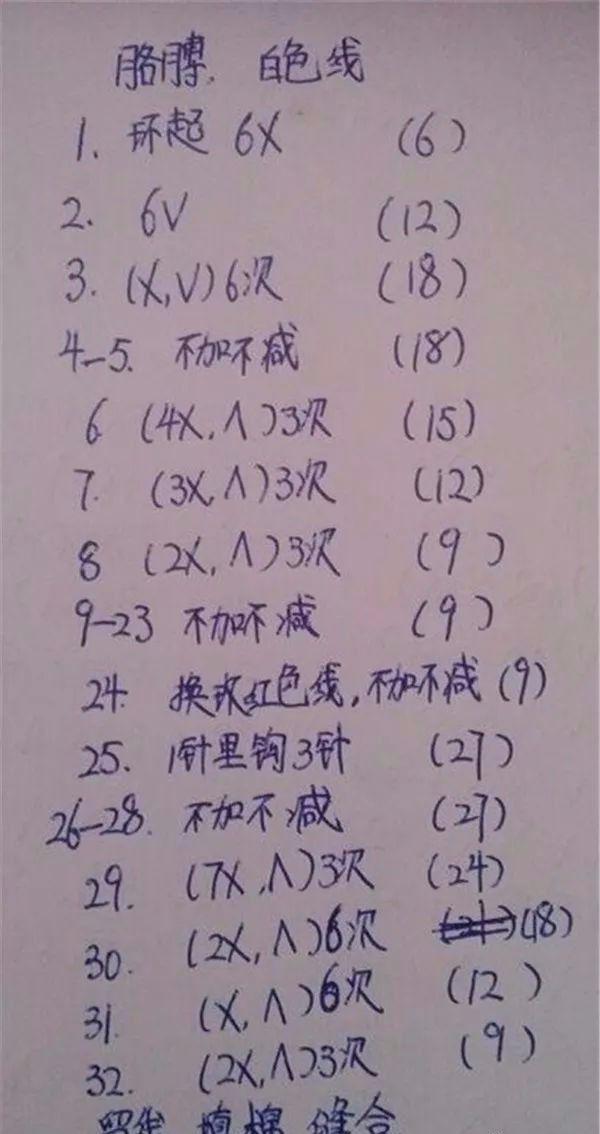 胳膊. 白色线
1. 环起 6X (6)
2. 6V (12)
3. (X,V)6次 (18)
4-5. 不加不减 (18)
6 (4X,Λ)3次 (15)
7. (3X,Λ)3次 (12)
8 (2X,Λ)3次 (9)
9-23 不加不减 (9)
24. 换玫红色线,不加不减 (9)
25. 1针里钩3针 (27)
26-28. 不加不减 (27)
29. (7X,Λ)3次 (24)
30. (2X,Λ)6次 (18)
31. (X,Λ)6次 (12)
32. (2X,Λ)3次 (9)
填棉 缝合